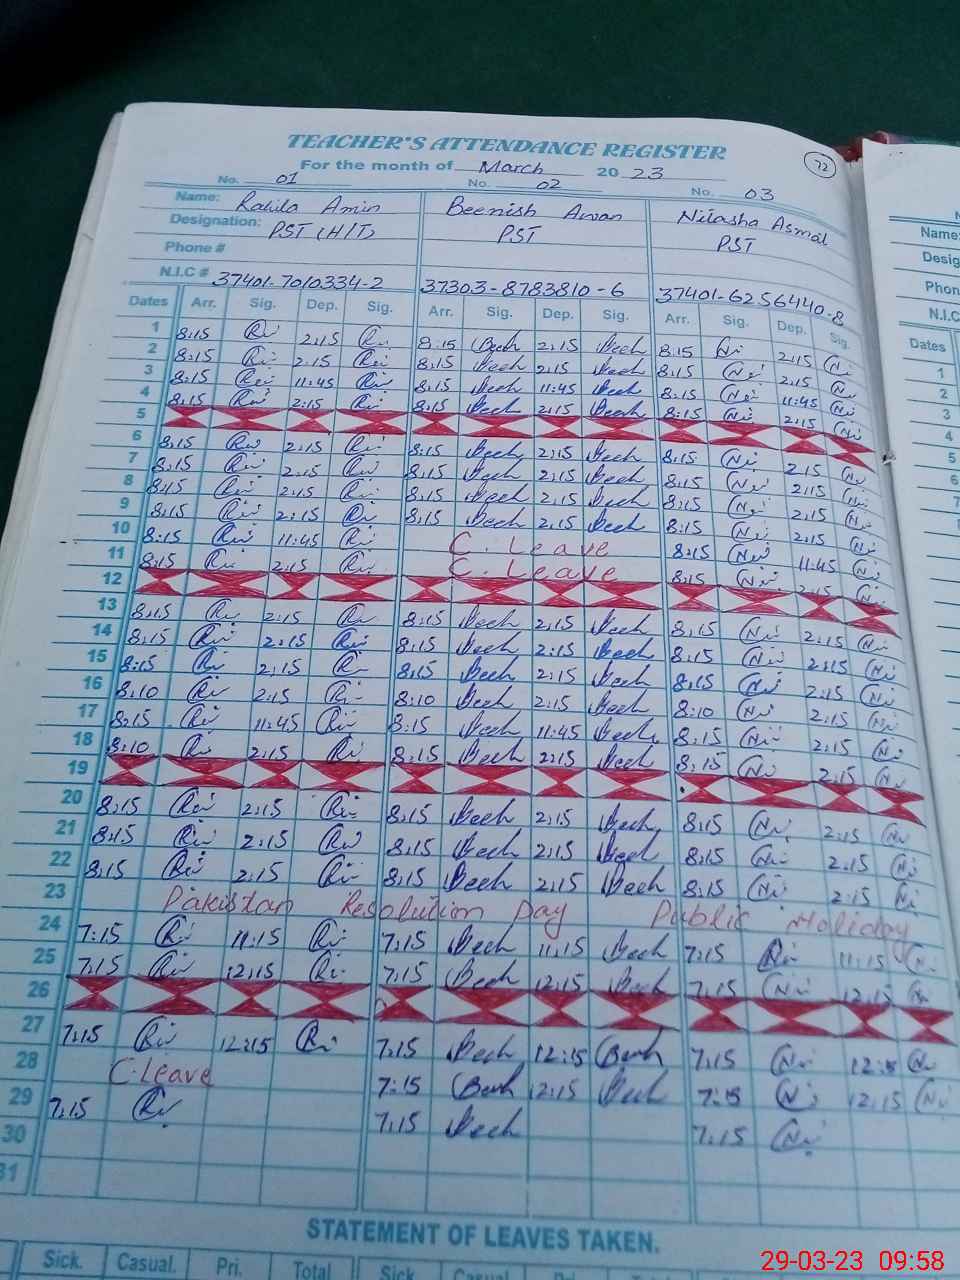 TEACHER'S ATTENDANCE REGISTER
72
For the month of March 2023
No. 01 No. 02 No. 03
Name: Rahila Amin Beenish Awan Nitasha Asmal
Designation: PST (H/T) PST PST
Phone #
N.I.C # 37401-7010334-2 37303-8783810-6 37401-6256440-8
Dates Arr. Sig. Dep. Sig. Arr. Sig. Dep. Sig. Arr. Sig. Dep. Sig.
1 8:15 2:15 8:15 Beeh 2:15 Beeh 8:15 Ni 2:15 Ni
2 8:15 2:15 8:15 Beeh 2:15 Beeh 8:15 Ni 2:15 Ni
3 8:15 11:45 8:15 Beeh 11:45 Beeh 8:15 Ni 11:45 Ni
4 8:15 2:15 8:15 Beeh 2:15 Beeh 8:15 Ni 2:15 Ni
5
6 8:15 2:15 8:15 Beeh 2:15 Beeh 8:15 Ni 2:15 Ni
7 8:15 2:15 8:15 Beeh 2:15 Beeh 8:15 Ni 2:15 Ni
8 8:15 2:15 8:15 Beeh 2:15 Beeh 8:15 Ni 2:15 Ni
9 8:15 2:15 8:15 Beeh 2:15 Beeh 8:15 Ni 2:15 Ni
10 8:15 11:45 C. Leave 8:15 Ni 11:45 Ni
11 8:15 2:15 C. Leave 8:15 Ni 2:15 Ni
12
13 8:15 2:15 8:15 Beeh 2:15 Beeh 8:15 Ni 2:15 Ni
14 8:15 2:15 8:15 Beeh 2:15 Beeh 8:15 Ni 2:15 Ni
15 8:15 2:15 8:15 Beeh 2:15 Beeh 8:15 Ni 2:15 Ni
16 8:10 2:15 8:10 Beeh 2:15 Beeh 8:10 Ni 2:15 Ni
17 8:15 11:45 8:15 Beeh 11:45 Beeh 8:15 Ni 2:15 Ni
18 8:10 2:15 8:15 Beeh 2:15 Beeh 8:15 Ni 2:15 Ni
19
20 8:15 2:15 8:15 Beeh 2:15 Beeh 8:15 Ni 2:15 Ni
21 8:15 2:15 8:15 Beeh 2:15 Beeh 8:15 Ni 2:15 Ni
22 8:15 2:15 8:15 Beeh 2:15 Beeh 8:15 Ni 2:15 Ni
23 Pakistan Resolution Day Public Holiday
24 7:15 11:15 7:15 Beeh 11:15 Beeh 7:15 Ni 11:15 Ni
25 7:15 12:15 7:15 Beeh 12:15 Beeh 7:15 Ni 12:15 Ni
26
27 7:15 12:15 7:15 Beeh 12:15 Beeh 7:15 Ni 12:15 Ni
28 C. Leave 7:15 Beeh 12:15 Beeh 7:15 Ni 12:15 Ni
29 7:15 7:15 Beeh 7:15 Ni
30
31
STATEMENT OF LEAVES TAKEN.
Sick. Casual. Pri. Total Sick Casual
Name:
Desig
Phon
N.I.C
Dates
1
2
3
4
5
6
29-03-23 09:58